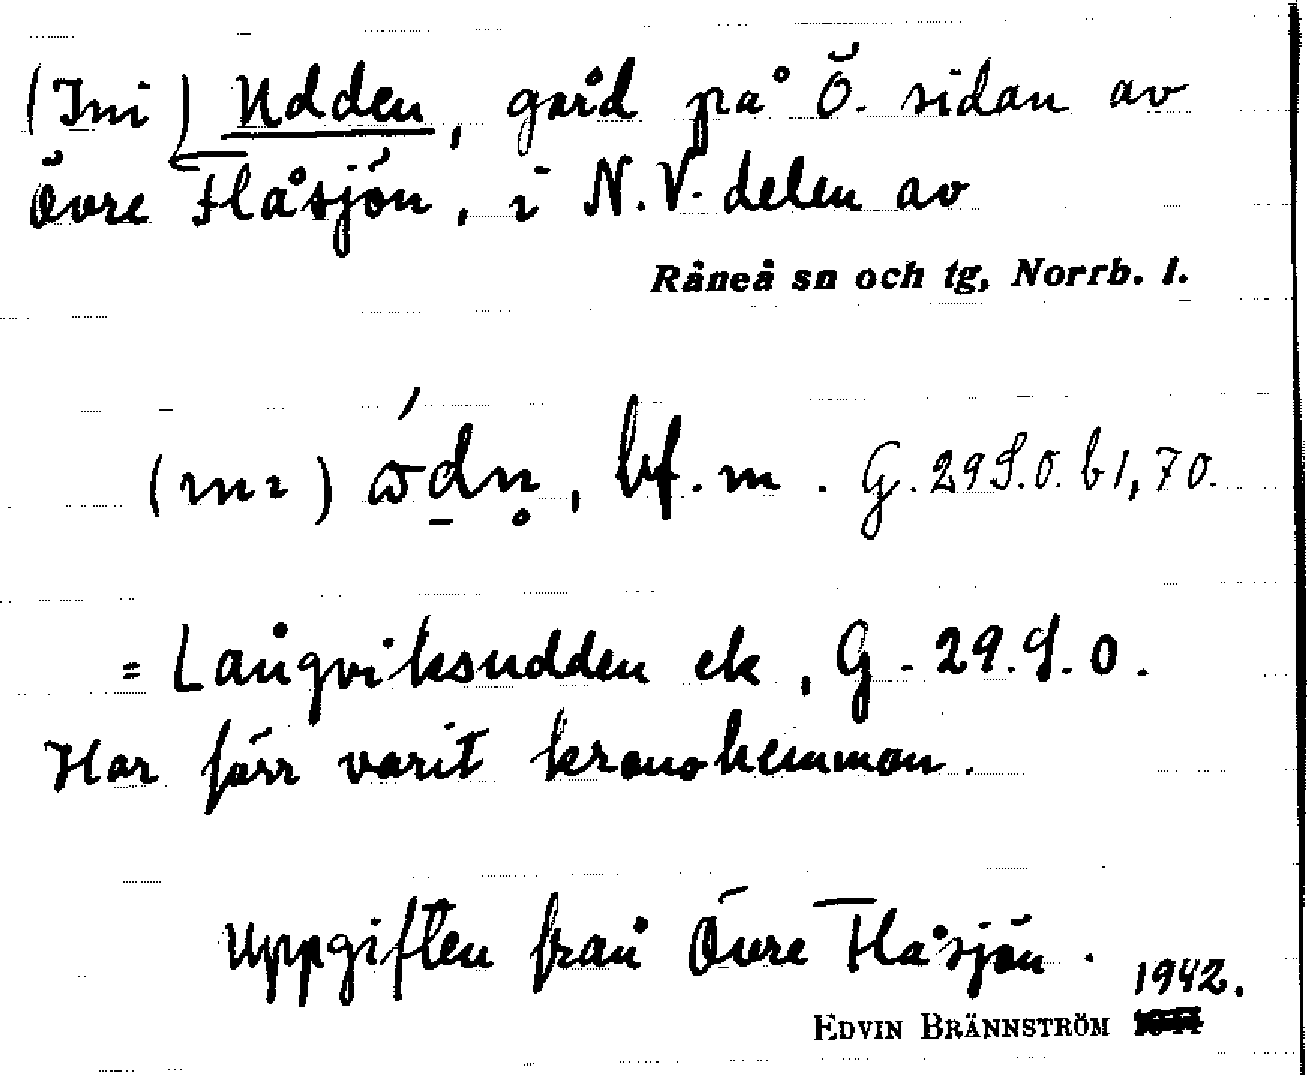 (Ini) Udden, gård på Ö. sidan av
Övre Flåsjön, i N.V. delen av
Råneå sn och tg, Norrb. l.
bf. m. G. 29 S.O. b 1, 70.
= Långviksudden ek, G. 29. S. O.
Har förr varit kronohemman.
Uppgiften från Övre Flåsjön.
1942.
EDVIN BRÄNNSTRÖM